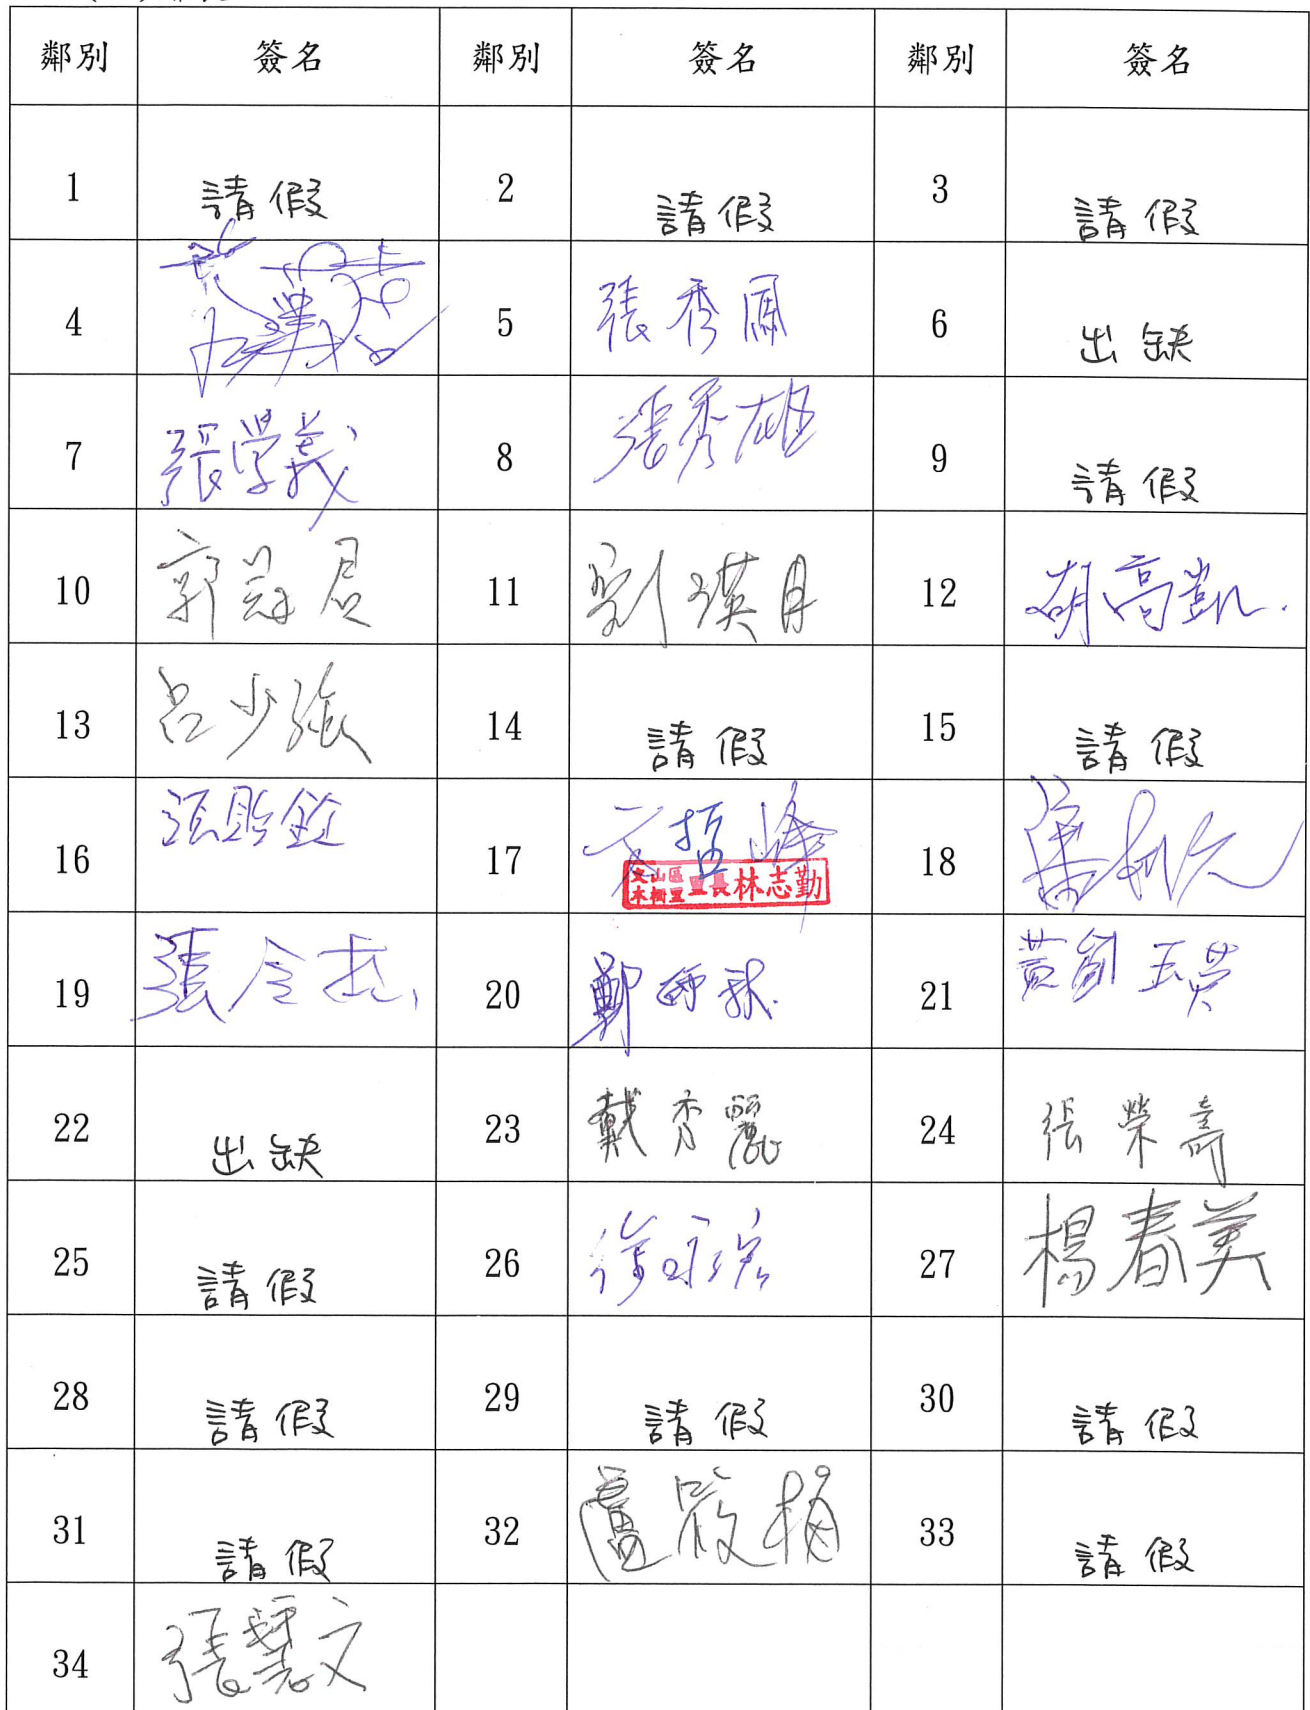 鄰別 簽名 鄰別 簽名 鄰別 簽名
1 請假 2 請假 3 請假
4 5 張秀 6 出缺
7 張學義 8 張秀雄 9 請假
10 郭冠君 11 劉瑛月 12 胡高凱.
13 呂少強 14 請假 15 請假
16 張貽銓 17 哲峰 18
文山區木柵里里長林志勤
19 張令 20 鄭 21 黃劉玉英
22 出缺 23 戴秀麗 24 張榮壽
25 請假 26 徐 27 楊春美
28 請假 29 請假 30 請假
31 請假 32 盧筱梅 33 請假
34 張慧文